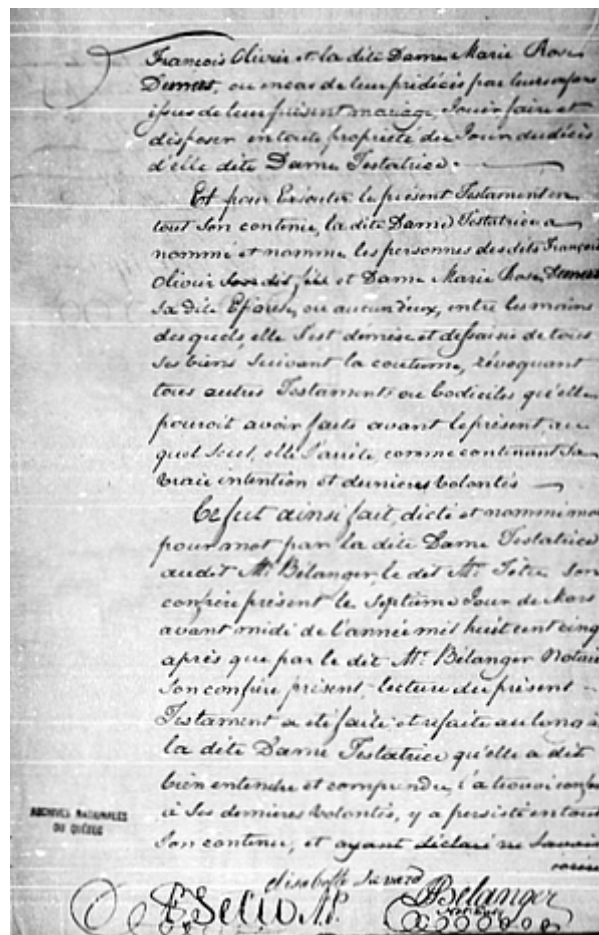 François Olivier et la dite Dame Marie Rose
Demers, ou en cas de leur prédécès par leurs enfans
issus de leur présent mariage, Jouir faire et
disposer en toute propriété du Jour du décès
d'elle dite Dame Testatrice.
Et pour Exécuter le présent Testament en
tout Son contenu, la dite Dame Testatrice a
nommé et nomme les personnes des dits François
Olivier Son dit fils et Dame Marie Rose Demers
Sa dite Epouse, ou aucun d'eux, entre les mains
des quels, elle S'est démise et dessaisie de tous
Ses biens Suivant la coutume, révoquant
tous autres Testaments ou Codiciles qu'elle
pouroit avoir faits avant le présent au
quel Seul, elle S'arrête, comme contenant Sa
vraie intention et dernieres volontés
Ce fut ainsi fait, dicté et nommé mot
pour mot par la dite Dame Testatrice
audit Mr. Bélanger le dit Mr. Têtu Son
confrère présent le Septieme Jour de Mars
avant midi de l'année mil huit cent cinq
après que par le dit Mr. Bélanger Notaire
Son confrère présent, lecture du présent
Testament a été faite et refaite au long à
la dite Dame Testatrice qu'elle a dit
bien entendre et comprendre, l'a trouvé
à Ses dernieres volontés, y a persisté en tout
Son contenu, et ayant déclaré ne Savoir
ARCHIVES NATIONALES
DU QUÉBEC
Bélanger